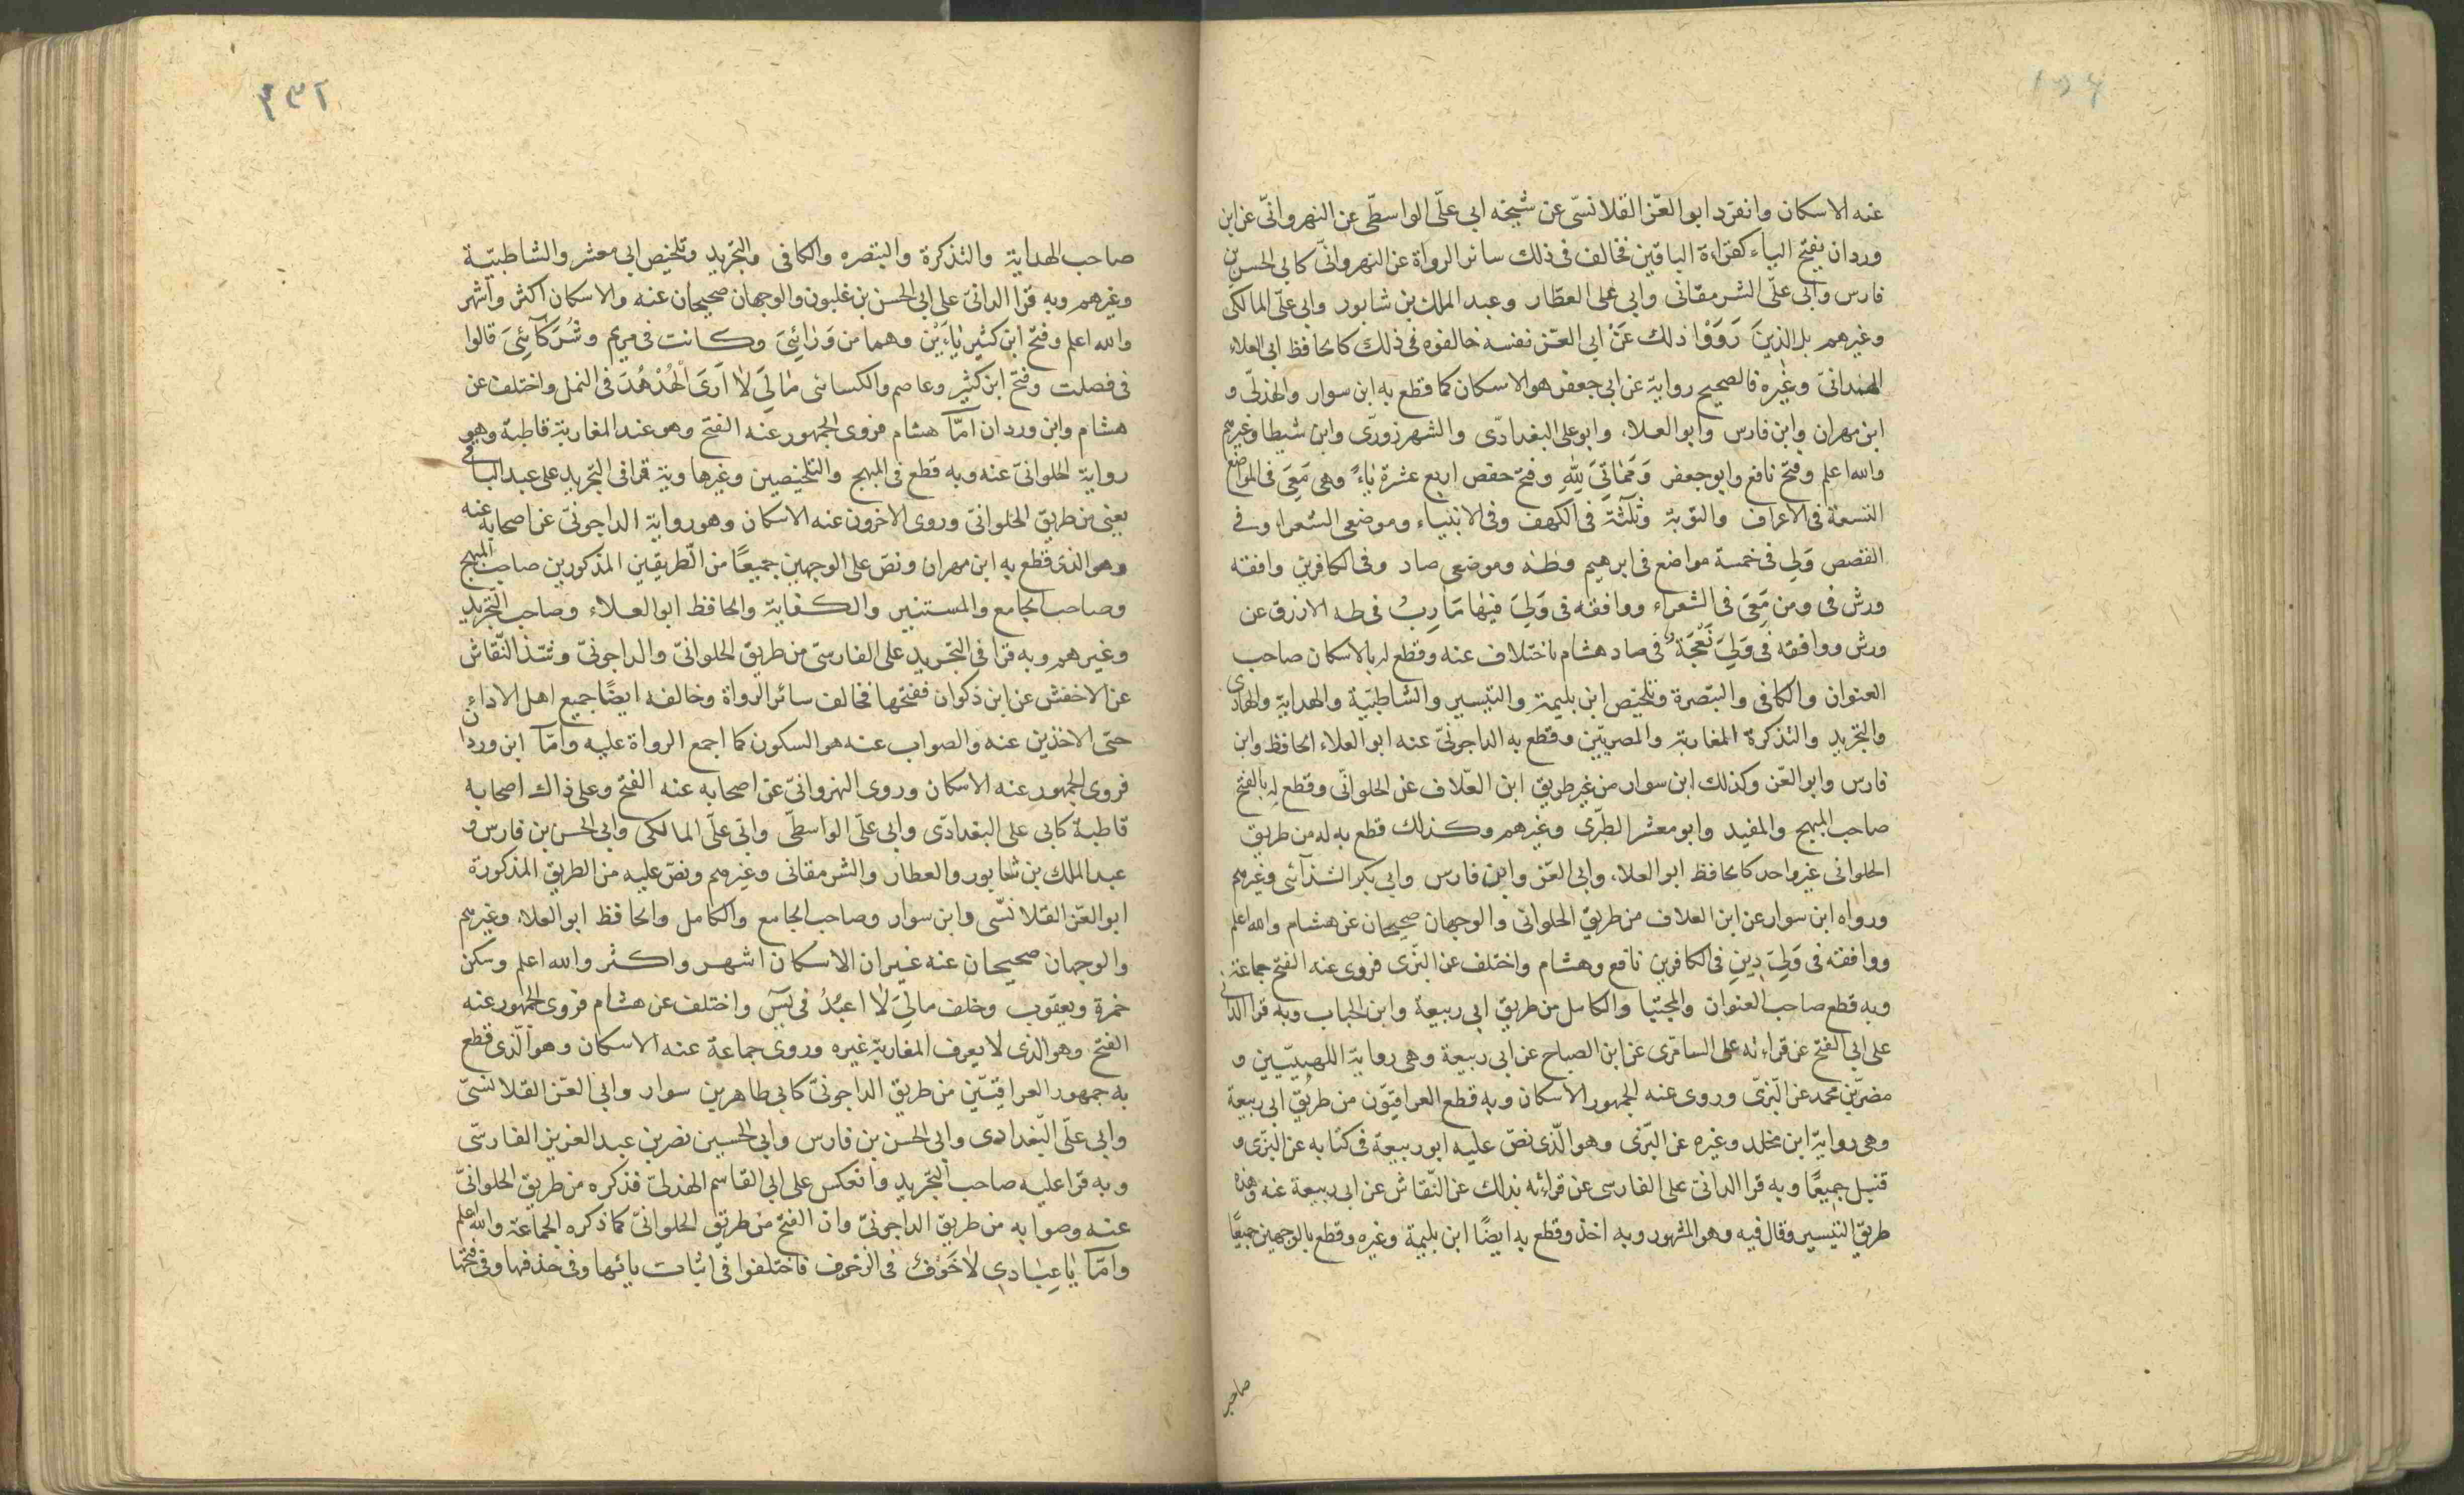 عنه الاسكان وانفرد ابو العّز القلانسّى عن شيخه ابى علّى الواسطّى عن النهروانّى عن ابن
وردان بفتح الياء كقراءة الباقين فخالف فى ذلك سائر الرواة عن النهروانّى كابى الحسن بن
فارس وابى علّى الشرمقانى وابى على العطّار وعبد الملك بن شابور وابى علّى المالكى
وغيرهم بل الذينَ رَوَوْا ذلك عَنْ ابى العّز نفسه خالفوه فى ذلك كالحافظ ابى العلاء
الهمدانىّ وغيره فالصحيح رواية عن ابى جعفر هو الاسكان كما قطع به ابن سوار والهذلّى و
ابن مهران وابن فارس وابو العلاء وابو على البغدادّى والشهرزورّى وابن شيطا وغيرهم
والله اعلم وفتح نافع وابو جعفر وَمَمَاتِىَ لِلّٰهِ وفتح حفص اربع عشرة ياءً وهى مَعِىَ فى المواضع
التسعة فى الاعراف والتوبة وثلٰثة فى الكهف وفى الانبياء وموضعى الشعراء وفى
القصص وَلِى فى خمسة مواضع فى ابرهيم وطٰه وموضعى صاد وفى الكافرين وافقه
ورش فى ومن مَعِىَ فى الشعراء ووافقه فى وَلِىَ فِيهَا مَآرِبُ فى طه الازرق عن
ورش ووافقه فى وَلِىَ نَعْجَةٌ فى صاد هشام باختلاف عنه وقطع له بالاسكان صاحب
العنوان والكافى والتبصرة وتلخيص ابن بليمة والتيسير والشاطبّية والهداية والهادى
والتجريد والتذكرة المغاربة والمصريّين وقطع به الداجونّى عنه ابو العلاء الحافظ وابن
فارس وابو العّز وكذلك ابن سوار من غير طريق ابن العّلاف عن الحلوانّى وقطع له بالفتح
صاحب المبهج والمفيد وابو معشر الطبرّى وغيرهم وكذلك قطع به له من طريق
الحلوانى غير واحد كالحافظ ابو العلاء وابى العّز وابن فارس وابى بكر الشذآئى وغيرهم
ورواه ابن سوار عن ابن العلاف من طريق الحلوانّى والوجهان صحيحان عن هشام والله اعلم
ووافقه فى وَلِىَ دِينِ فى الكافرين نافع وهشام واختلف عن البزّى فروى عنه الفتح جماعة
وبه قطع صاحب العنوان والمجتبا والكامل من طريق ابى ربيعة وابن الحباب وبه قرا الدانى
على ابى الفتح عن قراءته على السامرّى عن ابن الصباح عن ابى ربيعة وهى رواية اللهبيّيين و
مضر بن محمد عن البّزىّ وروى عنه الجمهور الاسكان وبه قطع العراقيّون من طريق ابى ربيعة
وهى رواية ابن مخلد وغيره عن البّزى وهو الّذى نصّ عليه ابو ربيعة فى كتابه عن البّزى و
قنبل جميعًا وبه قرا الدانىّ على الفارسى عن قراءته بذلك عن النّقاش عن ابى ربيعة عنه وهذه
طريق التيسير وقال فيه وهو المشهور وبه اخذ وقطع به ايضًا ابن بليمة وغيره وقطع بالوجهين جميعًا
صاحب
٢٣٢
صاحب الهداية والتذكرة والتبصره والكافى والتجريد وتلخيص ابى معشر والشاطبيّة
وغيرهم وبه قرا الدانىّ على ابى الحسن بن غلبون والوجهان صحيحان عنه والاسكان اكثر واشهر
والله اعلم وفتح ابن كثير ياءَيْن وهما من وَرَائِىَ وكانت فى مريم وشُرَكَآئِىَ قالوا
فى فصلت وفتح ابن كثير وعاصم والكسائى مَالِىَ لٰا اَرَىَ الْهُدْهُدَ فى النمل واختلف عن
هشام وابن وردان امّا هشام فروى الجمهور عنه الفتح وهو عند المغاربة قاطبة وهو
رواية الحلوانىّ عنه وبه قطع فى المبهج والتلخيصين وغيرها وبه قرا فى التجريد على عبد الباقى
يعنى من طريق الحلوانىّ وروى الاخرون عنه الاسكان وهو رواية الداجونىّ عن اصحابه عنه
وهو الذى قطع به ابن مهران ونصّ على الوجهين جميعًا من الّطريقين المذكورين صاحب المبهج
وصاحب الجامع والمستنير والكفاية والحافظ ابو العلاء وصاحب التجريد
وغيرهم وبه قرا فى التجريد على الفارسّى من طريق الحلوانىّ والداجونىّ وشّذ النّقاش
عن الاخفش عن ابن ذكوان ففتحها فخالف سائر الرواة وخالفه ايضًا جميع اهل الاداء
حتى الاخذين عنه والصواب عنه هو السكون كما اجمع الرواة عليه وامّآ ابن وردان
فروى الجمهور عنه الاسكان وروى النهروانىّ عن اصحابه عنه الفتح وعلى ذلك اصحابه
قاطبة كابى على البغدادّى وابى علّى الواسطّى وابى علّى المالكى وابى الحسن بن فارس و
عبد الملك بن شابور والعطار والشرمقانى وغيرهم ونصّ عليه من الطريق المذكورة
ابو العّز القلانسّى وابن سوار وصاحب الجامع والكامل والحافظ ابو العلاء وغيرهم
والوجهان صحيحان عنه غير ان الاسكان اشهر واكثر والله اعلم وسكن
حمزة ويعقوب وخلف مالِىَ لٰا اعبُدُ فى يٓسٓ واختلف عن هشام فروى الجمهور عنه
الفتح وهو الذى لا يعرف المغاربة غيره وروى جماعة عنه الاسكان وهو الّذى قطع
به جمهور العراقيّين من طريق الداجونىّ كابى طاهر بن سوار وابى العّز القلانسىّ
وابى علّى البّغدادى وابى الحسن بن فارس وابى الحسين نصر بن عبد العزيز الفارسّى
وبه قرا عليه صاحب التجريد وانعكس على ابى القاسم الهذلىّ فذكره من طريق الحلوانىّ
عنه وصوابه من طريق الداجونىّ وان الفتح من طريق الحلوانىّ كما ذكره الجماعة والله اعلم
وامّآ يٰا عِبَادِى لٰا خَوْفٌ فى الزخرف فاختلفوا فى اثبات يائها وفى حذفها وفى فتحها